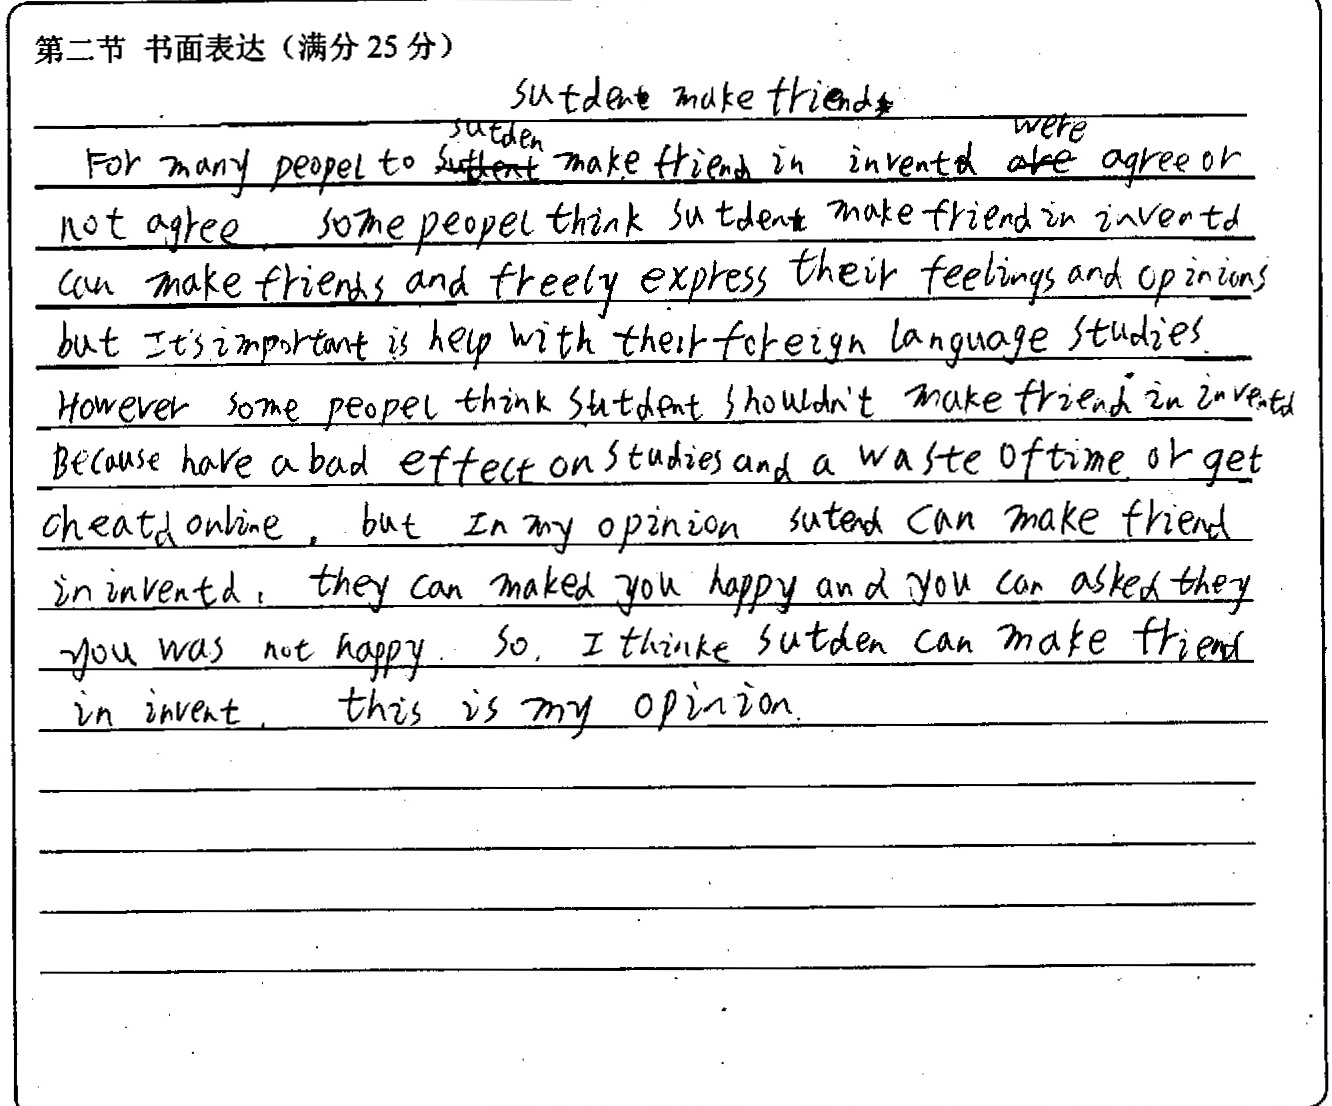 第二节 书面表达（满分 25 分）
sutdent make friends
sutden were
For many peopel to make friend in inventd agree or
not agree. some peopel think sutdent make friend in inventd
can make friends and freely express their feelings and opinions
but It's important is help with their foreign language studies.
However some peopel think sutdent shouldn't make friend in inventd
Because have a bad effect on studies and a waste of time or get
cheatd online. but In my opinion sutend can make friend
in inventd. they can maked you happy and you can asked they
you was not happy. So, I thinke sutden can make friend
in invent. this is my opinion.